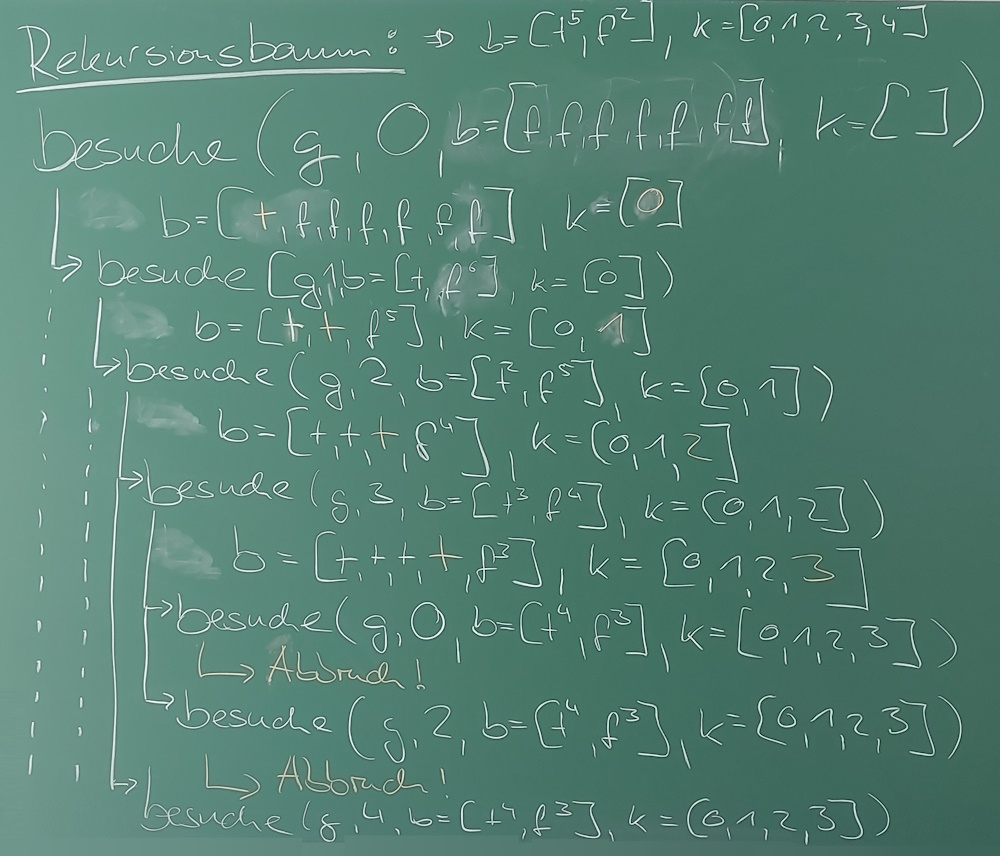 Rekursionsbaum: ⇒ b=[t⁵,f²], k=[0,1,2,3,4]
besuche (g, 0, b=[f,f,f,f,f,f,f], k=[ ])
b=[t,f,f,f,f,f,f], k=[0]
↳ besuche [g,1,b=[t,f⁶], k=[0])
b=[t,t,f⁵], k=[0,1]
↳ besuche (g,2,b=[t²,f⁵], k=[0,1])
b=[t,t,t,f⁴], k=[0,1,2]
↳ besuche (g,3,b=[t³,f⁴], k=[0,1,2])
b=[t,t,t,t,f³], k=[0,1,2,3]
→ besuche (g,0,b=[t⁴,f³], k=[0,1,2,3])
↳ Abbruch!
↳ besuche (g,2,b=[t⁴,f³], k=[0,1,2,3])
↳ Abbruch!
↳ besuche (g,4,b=[t⁴,f³], k=[0,1,2,3])